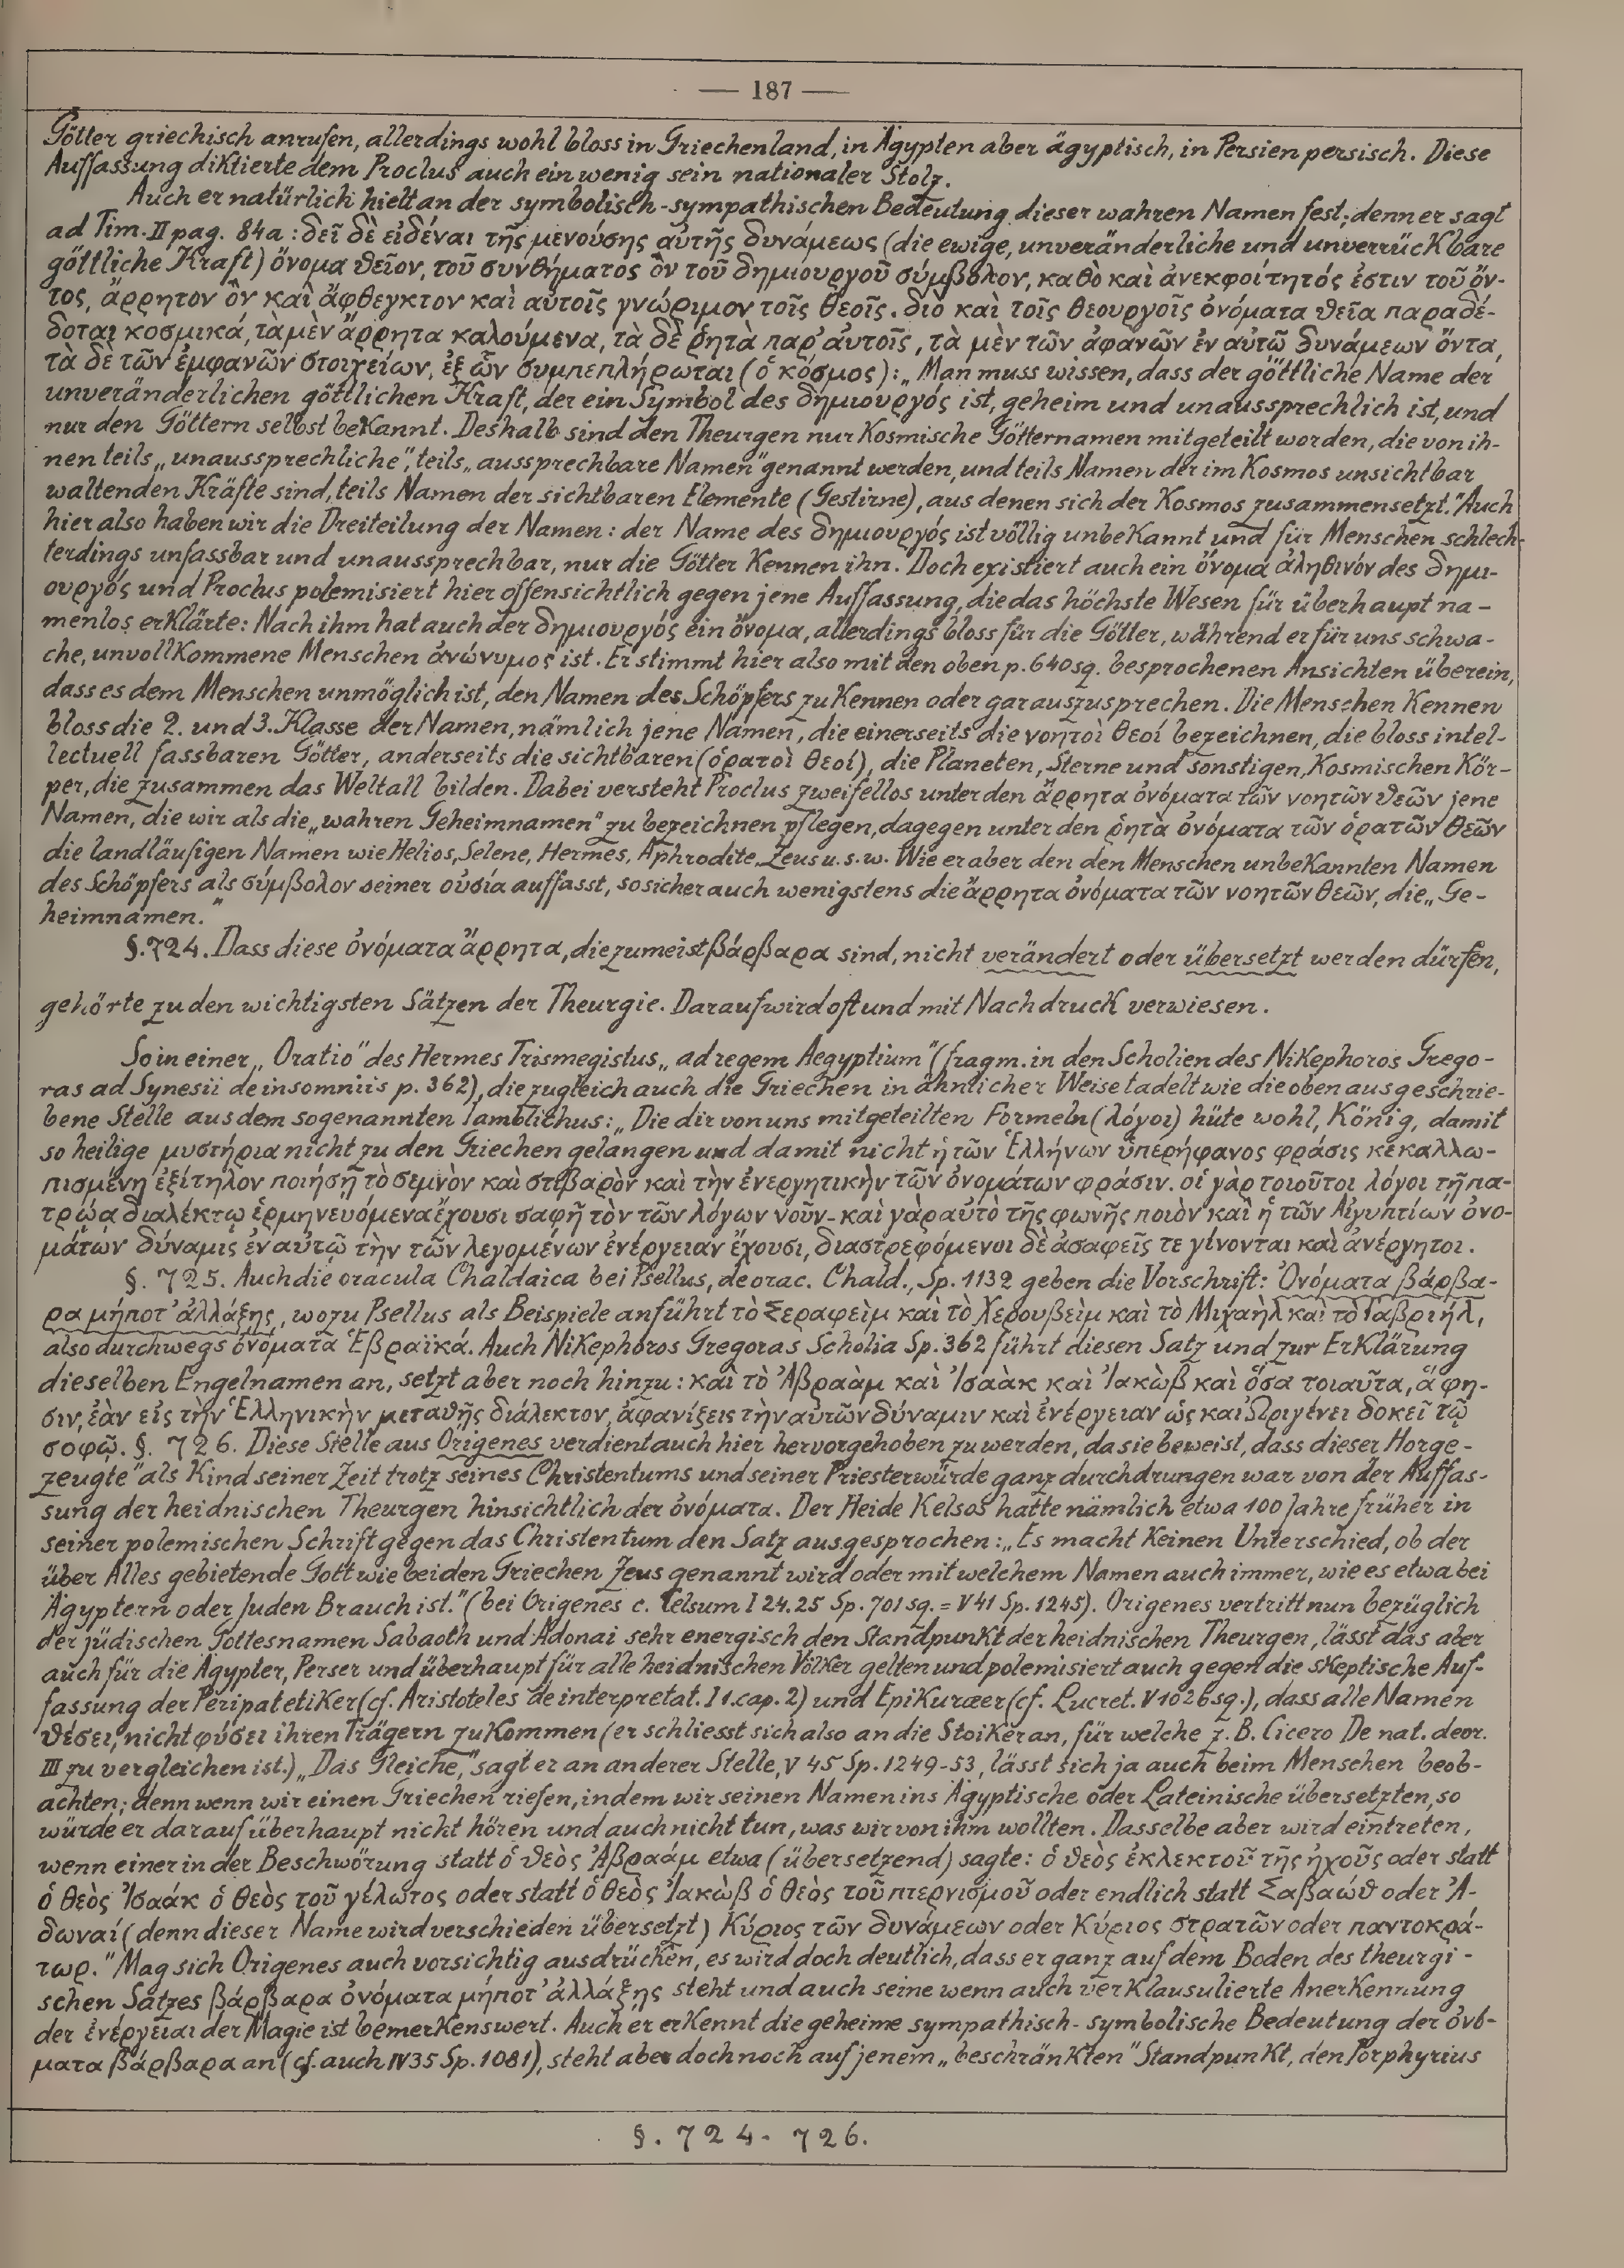 — 187 —
Götter griechisch anrufen, allerdings wohl bloss in Griechenland, in Ägypten aber ägyptisch, in Persien persisch. Diese
Auffassung diktierte dem Proclus auch ein wenig sein nationaler Stolz.
Auch er natürlich hielt an der symbolisch-sympathischen Bedeutung dieser wahren Namen fest; denn er sagt
ad Tim. II pag. 84a: δεῖ δὲ εἰδέναι τῆς μενούσης αὐτῆς δυνάμεως (die ewige, unveränderliche und unverrückbare
göttliche Kraft) ὄνομα θεῖον, τοῦ συνθήματος ὂν τοῦ δημιουργοῦ σύμβολον, καθὸ καὶ ἀνεκφοίτητός ἐστιν τοῦ ὄν-
τος, ἄρρητον ὂν καὶ ἄφθεγκτον καὶ αὐτοῖς γνώριμον τοῖς θεοῖς. διὸ καὶ τοῖς θεουργοῖς ὀνόματα θεῖα παραδέ-
δοται κοσμικά, τὰ μὲν ἄρρητα καλούμενα, τὰ δὲ ῥητὰ παρ' αὐτοῖς, τὰ μὲν τῶν ἀφανῶν ἐν αὐτῷ δυνάμεων ὄντα,
τὰ δὲ τῶν ἐμφανῶν στοιχείων, ἐξ ὧν συμπεπλήρωται (ὁ κόσμος): „Man muss wissen, dass der göttliche Name der
unveränderlichen göttlichen Kraft, der ein Symbol des δημιουργός ist, geheim und unaussprechlich ist, und
nur den Göttern selbst bekannt. Deshalb sind den Theurgen nur kosmische Götternamen mitgeteilt worden, die von ih-
nen teils „unaussprechliche", teils „aussprechbare Namen" genannt werden, und teils Namen der im Kosmos unsichtbar
waltenden Kräfte sind, teils Namen der sichtbaren Elemente (Gestirne), aus denen sich der Kosmos zusammensetzt." Auch
hier also haben wir die Dreiteilung der Namen: der Name des δημιουργός ist völlig unbekannt und für Menschen schlech-
terdings unfassbar und unaussprechbar, nur die Götter kennen ihn. Doch existiert auch ein ὄνομα ἀληθινόν des δημι-
ουργός und Proclus polemisiert hier offensichtlich gegen jene Auffassung, die das höchste Wesen für überhaupt na-
menlos erklärte: Nach ihm hat auch der δημιουργός ein ὄνομα, allerdings bloss für die Götter, während er für uns schwa-
che, unvollkommene Menschen ἀνώνυμος ist. Er stimmt hier also mit den oben p. 640sq. besprochenen Ansichten überein,
dass es dem Menschen unmöglich ist, den Namen des Schöpfers zu kennen oder gar auszusprechen. Die Menschen kennen
bloss die 2. und 3. Klasse der Namen, nämlich jene Namen, die einerseits die νοητοὶ θεοί bezeichnen, die bloss intel-
lectuell fassbaren Götter, anderseits die sichtbaren (ὁρατοὶ θεοί), die Planeten, Sterne und sonstigen, kosmischen Kör-
per, die zusammen das Weltall bilden. Dabei versteht Proclus zweifellos unter den ἄρρητα ὀνόματα τῶν νοητῶν θεῶν jene
Namen, die wir als die „wahren Geheimnamen" zu bezeichnen pflegen, dagegen unter den ῥητὰ ὀνόματα τῶν ὁρατῶν θεῶν
die landläufigen Namen wie Helios, Selene, Hermes, Aphrodite, Zeus u. s. w. Wie er aber den den Menschen unbekannten Namen
des Schöpfers als σύμβολον seiner οὐσία auffasst, so sicher auch wenigstens die ἄρρητα ὀνόματα τῶν νοητῶν θεῶν, die „Ge-
heimnamen."
§. 724. Dass diese ὀνόματα ἄρρητα, die zumeist βάρβαρα sind, nicht verändert oder übersetzt werden dürfen,
gehörte zu den wichtigsten Sätzen der Theurgie. Darauf wird oft und mit Nachdruck verwiesen.
So in einer „Oratio" des Hermes Trismegistus „ad regem Aegyptium" (fragm. in den Scholien des Nikephoros Grego-
ras ad Synesii de insomniis p. 362), die zugleich auch die Griechen in ähnlicher Weise tadelt wie die oben ausgeschrie-
bene Stelle aus dem sogenannten Iamblichus: „Die dir von uns mitgeteilten Formeln (λόγοι) hüte wohl, König, damit
so heilige μυστήρια nicht zu den Griechen gelangen und damit nicht ἡ τῶν Ἑλλήνων ὑπερήφανος φράσις κεκαλλω-
πισμένη ἐξίτηλον ποιήσῃ τὸ σεμνὸν καὶ στιβαρὸν καὶ τὴν ἐνεργητικὴν τῶν ὀνομάτων φράσιν. οἱ γὰρ τοιοῦτοι λόγοι τῇ πα-
τρῴᾳ διαλέκτῳ ἑρμηνευόμενα ἔχουσι σαφῆ τὸν τῶν λόγων νοῦν - καὶ γὰρ αὐτὸ τῆς φωνῆς ποιὸν καὶ ἡ τῶν Αἰγυπτίων ὀνο-
μάτων δύναμις ἐν αὐτῷ τὴν τῶν λεγομένων ἐνέργειαν ἔχουσι, διαστρεφόμενοι δὲ ἀσαφεῖς τε γίνονται καὶ ἀνέργητοι.
§. 725. Auch die oracula Chaldaica bei Psellus, de orac. Chald., Sp. 1132 geben die Vorschrift: Ὀνόματα βάρβα-
ρα μήποτ' ἀλλάξῃς, wozu Psellus als Beispiele anführt τὸ Σεραφεὶμ καὶ τὸ Χερουβεὶμ καὶ τὸ Μιχαὴλ καὶ τὸ Γαβριήλ,
also durchwegs ὀνόματα Ἑβραϊκά. Auch Nikephoros Gregoras Scholia Sp. 362 führt diesen Satz und zur Erklärung
dieselben Engelnamen an, setzt aber noch hinzu: καὶ τὸ Ἀβραὰμ καὶ Ἰσαὰκ καὶ Ἰακὼβ καὶ ὅσα τοιαῦτα, ἅ φη-
σιν, ἐὰν εἰς τὴν Ἑλληνικὴν μεταθῇς διάλεκτον, ἀφανίξεις τὴν αὐτῶν δύναμιν καὶ ἐνέργειαν ὡς καὶ Ὠριγένει δοκεῖ τῷ
σοφῷ. §. 726. Diese Stelle aus Origenes verdient auch hier hervorgehoben zu werden, da sie beweist, dass dieser „Horge-
zeugte" als Kind seiner Zeit trotz seines Christentums und seiner Priesterwürde ganz durchdrungen war von der Auffas-
sung der heidnischen Theurgen hinsichtlich der ὀνόματα. Der Heide Kelsos hatte nämlich etwa 100 Jahre früher in
seiner polemischen Schrift gegen das Christentum den Satz ausgesprochen: „Es macht keinen Unterschied, ob der
über Alles gebietende Gott wie bei den Griechen Zeus genannt wird oder mit welchem Namen auch immer, wie es etwa bei
Ägyptern oder Juden Brauch ist." (bei Origenes c. Celsum I 24.25 Sp. 701sq. = V 41 Sp. 1245). Origenes vertritt nun bezüglich
der jüdischen Gottesnamen Sabaoth und Adonai sehr energisch den Standpunkt der heidnischen Theurgen, lässt das aber
auch für die Ägypter, Perser und überhaupt für alle heidnischen Völker gelten und polemisiert auch gegen die skeptische Auf-
fassung der Peripatetiker (cf. Aristoteles de interpretat. I 1. cap. 2) und Epikuraeer (cf. Lucret. V 1026 sq.), dass alle Namen
θέσει, nicht φύσει ihren Trägern zukommen (er schliesst sich also an die Stoiker an, für welche z. B. Cicero De nat. deor.
III zu vergleichen ist.) „Das Gleiche," sagt er an anderer Stelle, V 45 Sp. 1249-53, lässt sich ja auch beim Menschen beob-
achten; denn wenn wir einen Griechen riefen, indem wir seinen Namen ins Ägyptische oder Lateinische übersetzten, so
würde er darauf überhaupt nicht hören und auch nicht tun, was wir von ihm wollten. Dasselbe aber wird eintreten,
wenn einer in der Beschwörung statt ὁ θεὸς Ἀβραάμ etwa (übersetzend) sagte: ὁ θεὸς ἐκλεκτοῦ τῆς ἠχοῦς oder statt
ὁ θεὸς Ἰσαάκ ὁ θεὸς τοῦ γέλωτος oder statt ὁ θεὸς Ἰακὼβ ὁ θεὸς τοῦ πτερνισμοῦ oder endlich statt Σαβαώθ oder Ἀ-
δωναί (denn dieser Name wird verschieden übersetzt) Κύριος τῶν δυνάμεων oder Κύριος στρατῶν oder παντοκρά-
τωρ." Mag sich Origenes auch vorsichtig ausdrücken, es wird doch deutlich, dass er ganz auf dem Boden des theurgi-
schen Satzes βάρβαρα ὀνόματα μήποτ' ἀλλάξῃς steht und auch seine wenn auch verklausulierte Anerkennung
der ἐνέργειαι der Magie ist bemerkenswert. Auch er erkennt die geheime sympathisch-symbolische Bedeutung der ὀνό-
ματα βάρβαρα an (cf. auch IV 35 Sp. 1081), steht aber doch noch auf jenem „beschränkten" Standpunkt, den Porphyrius
§. 724 - 726.